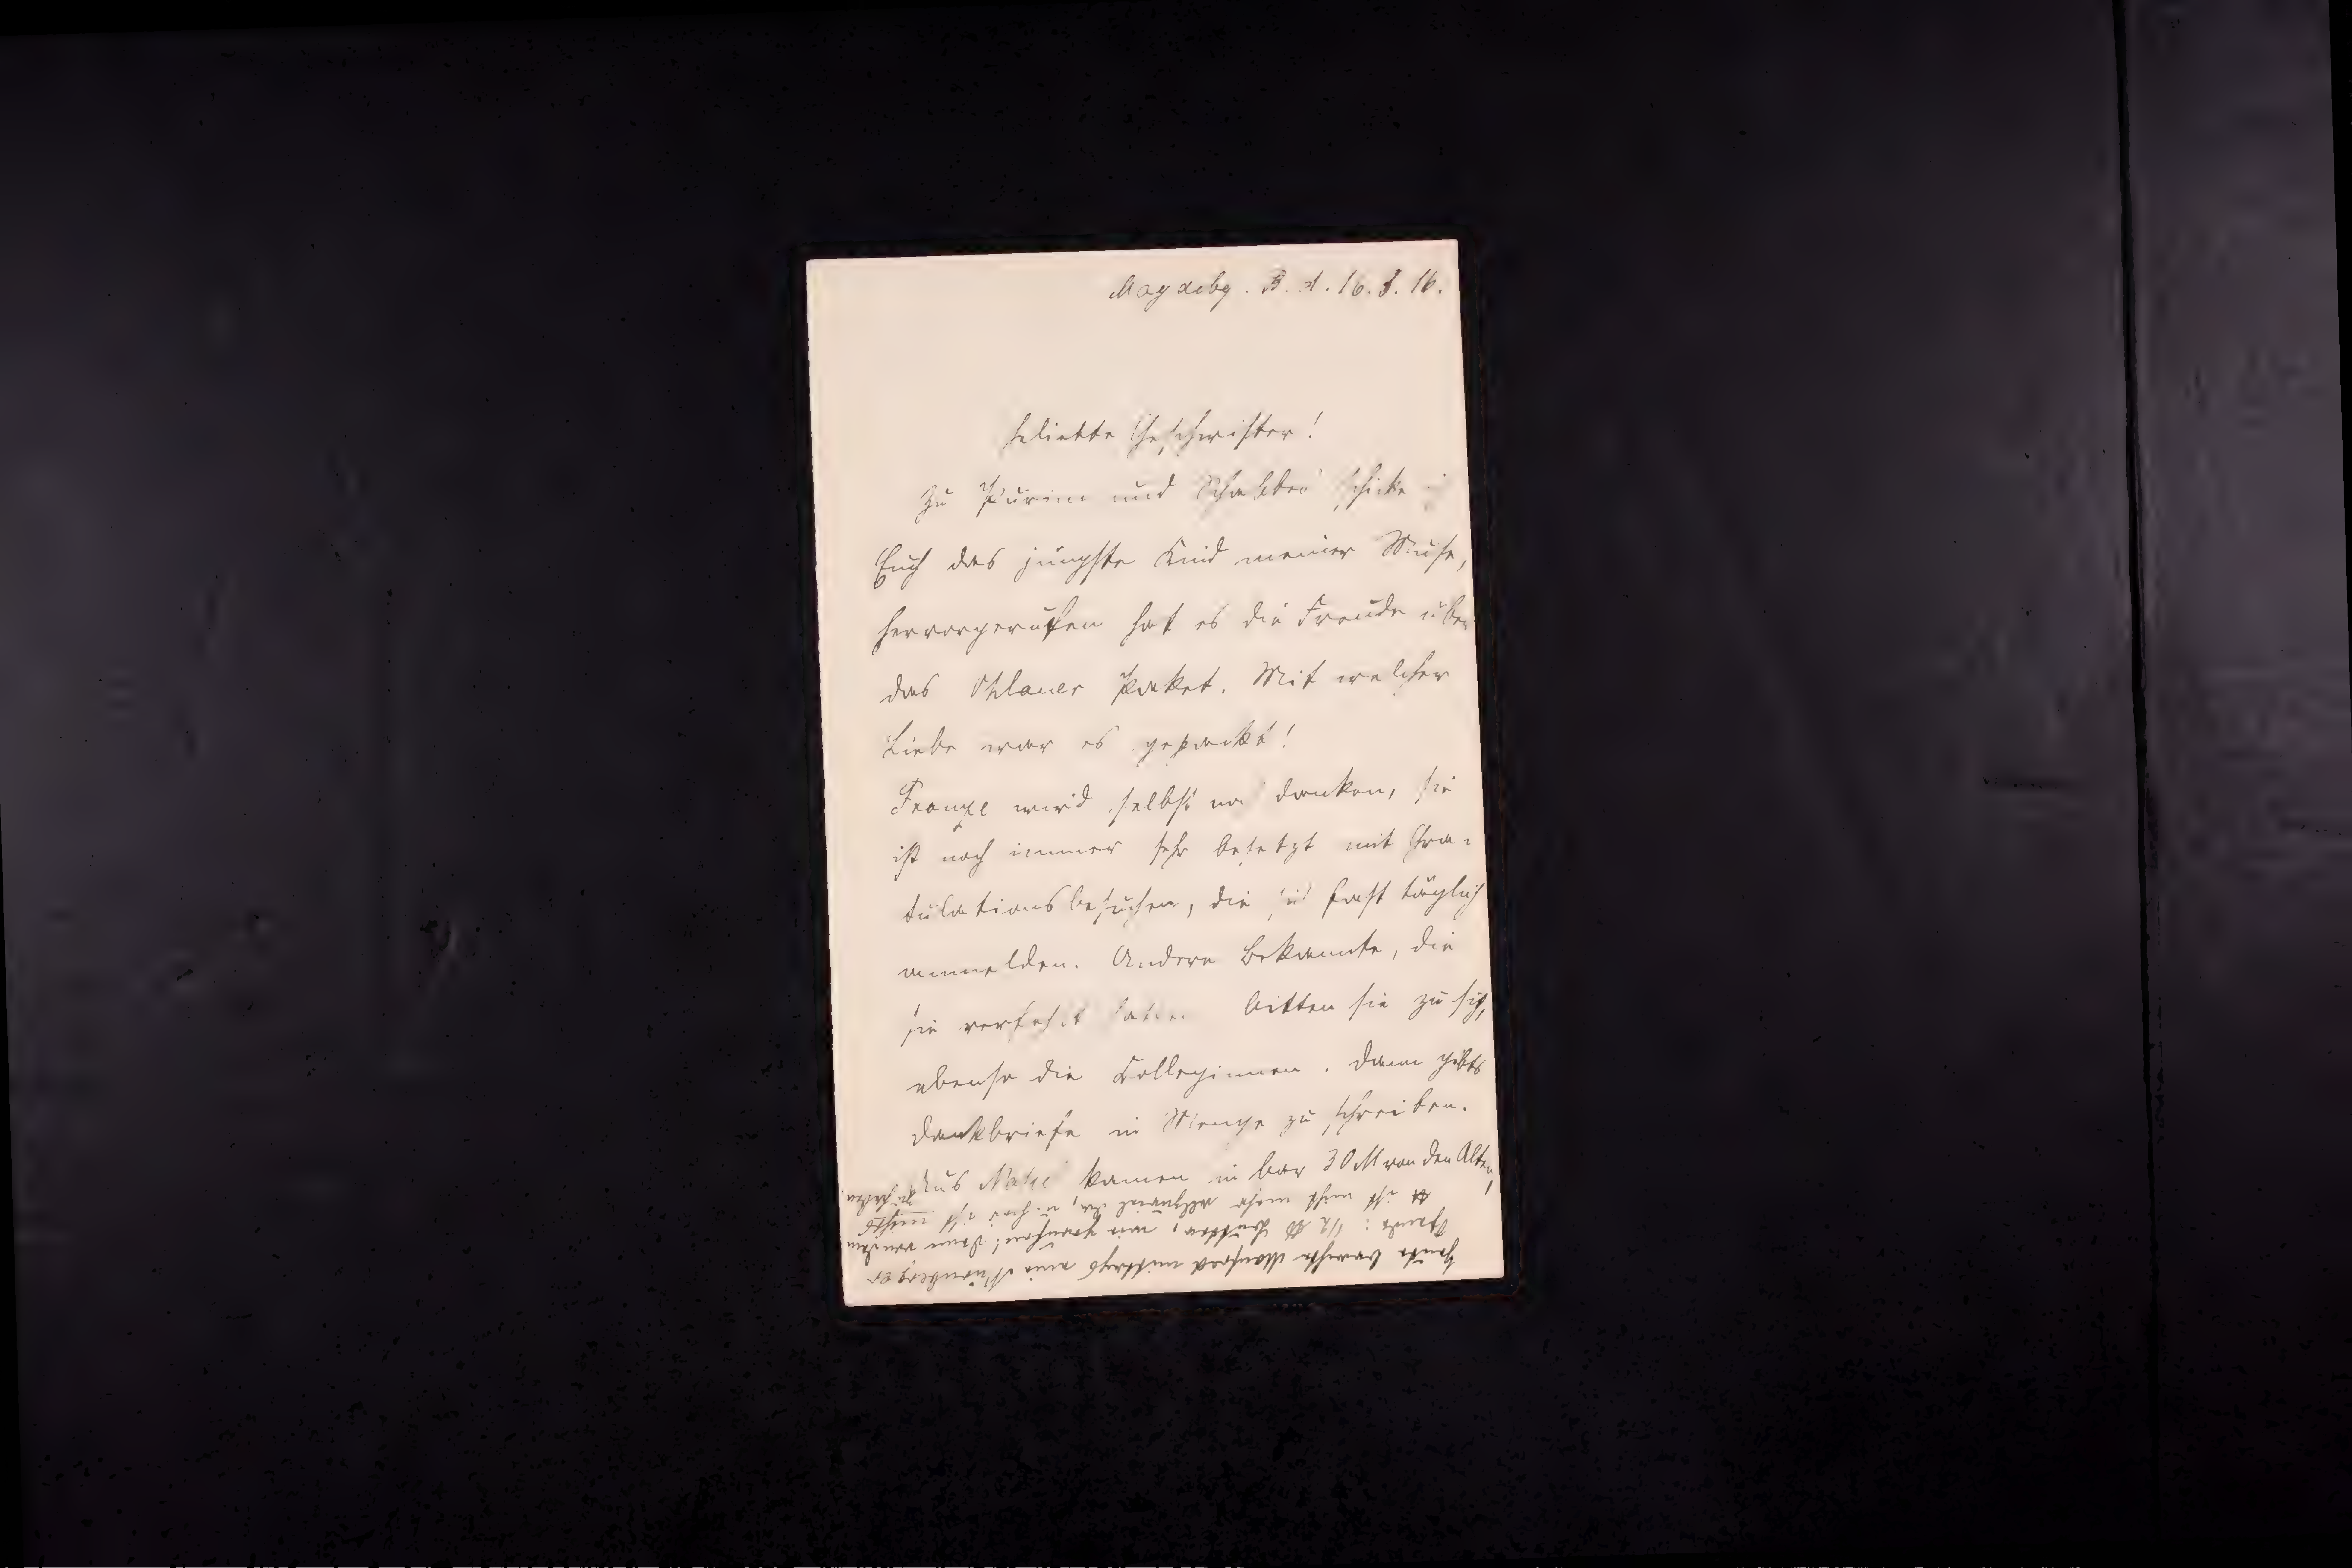 Magdebg. B. A. 16.3.16.
Geliebte Geschwister!
Zu Purim und Schabbos schicke
Euch das jüngste Kind meiner Muse,
hervorgerufen hat es die Freude über
das Ohlauer Paket. Mit welcher
Liebe war es gepackt!
Franze wird selbst danken, sie
ist noch immer sehr besetzt mit Gra-
tulationsbesuchen, die fast täglich
anmelden. Andere Bekannte, die
sie verfehlt haben bitten sie zu sich,
ebenso die Colleginnen. Dann gibts
Dankbriefe in Menge zu schreiben.
Aus kamen in bar 30 M von den Alten,
Heute brachte Manfred mittags eine Nürnberger
Spende: 1/2 ℔ Butter, wir
ist nicht mehr u. hier ist nichts
zu haben.